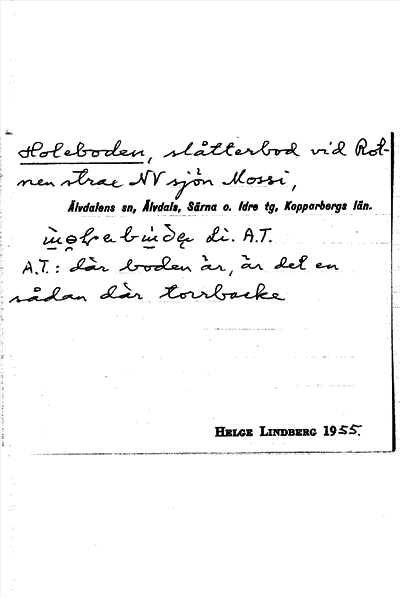 Holeboden, slåtterbod vid Rot-
nen strax NV sjön Mossi,
Älvdalens sn, Älvdals, Särna o. Idre tg, Kopparbergs län.
di. A.T.
A.T.: där boden är, är det en
sådan där torrbacke
HELGE LINDBERG 1955.